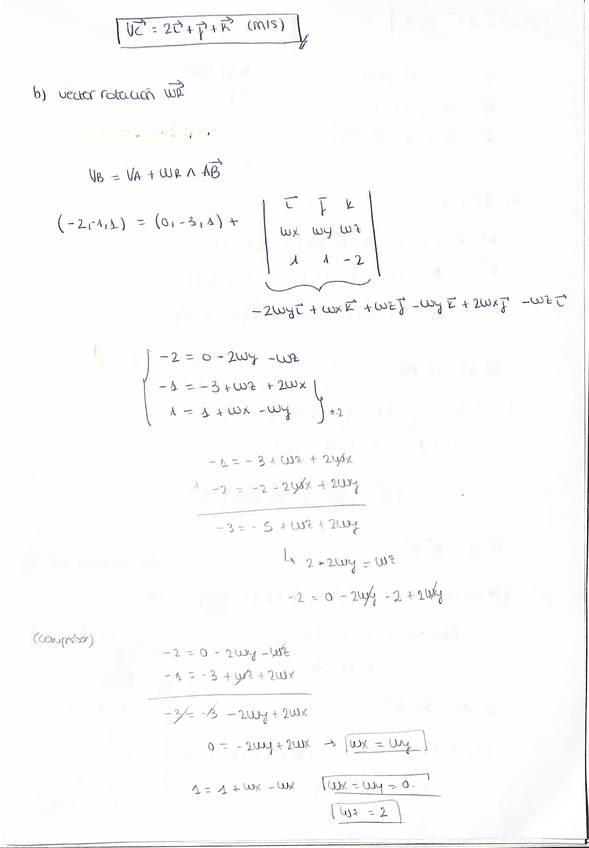 vc⃗ = 2i⃗ + j⃗ + k⃗ (m/s)
b) vector rotación wR⃗
VB = VA + WR ∧ AB⃗
(-2,-1,1) = (0,-3,1) + | i⃗ j⃗ k |
| wx wy wz |
| 1 1 -2 |
-2wy i⃗ + wx k⃗ + wz j⃗ - wy k⃗ + 2wx j⃗ - wz i⃗
-2 = 0 - 2wy - wz
-1 = -3 + wz + 2wx
1 = 1 + wx - wy } ·2
-1 = -3 + wz + 2wx
+ -2 = -2 - 2wx + 2wy
-3 = -5 + wz + 2wy
↳ 2 - 2wy = wz
-2 = 0 - 2wy - 2 + 2wy
-2 = 0 - 2wy - wz
-1 = -3 + wz + 2wx
-3 = -3 - 2wy + 2wx
0 = -2wy + 2wx → wx = wy
1 = 1 + wx - wx wx = wy = 0.
wz = 2